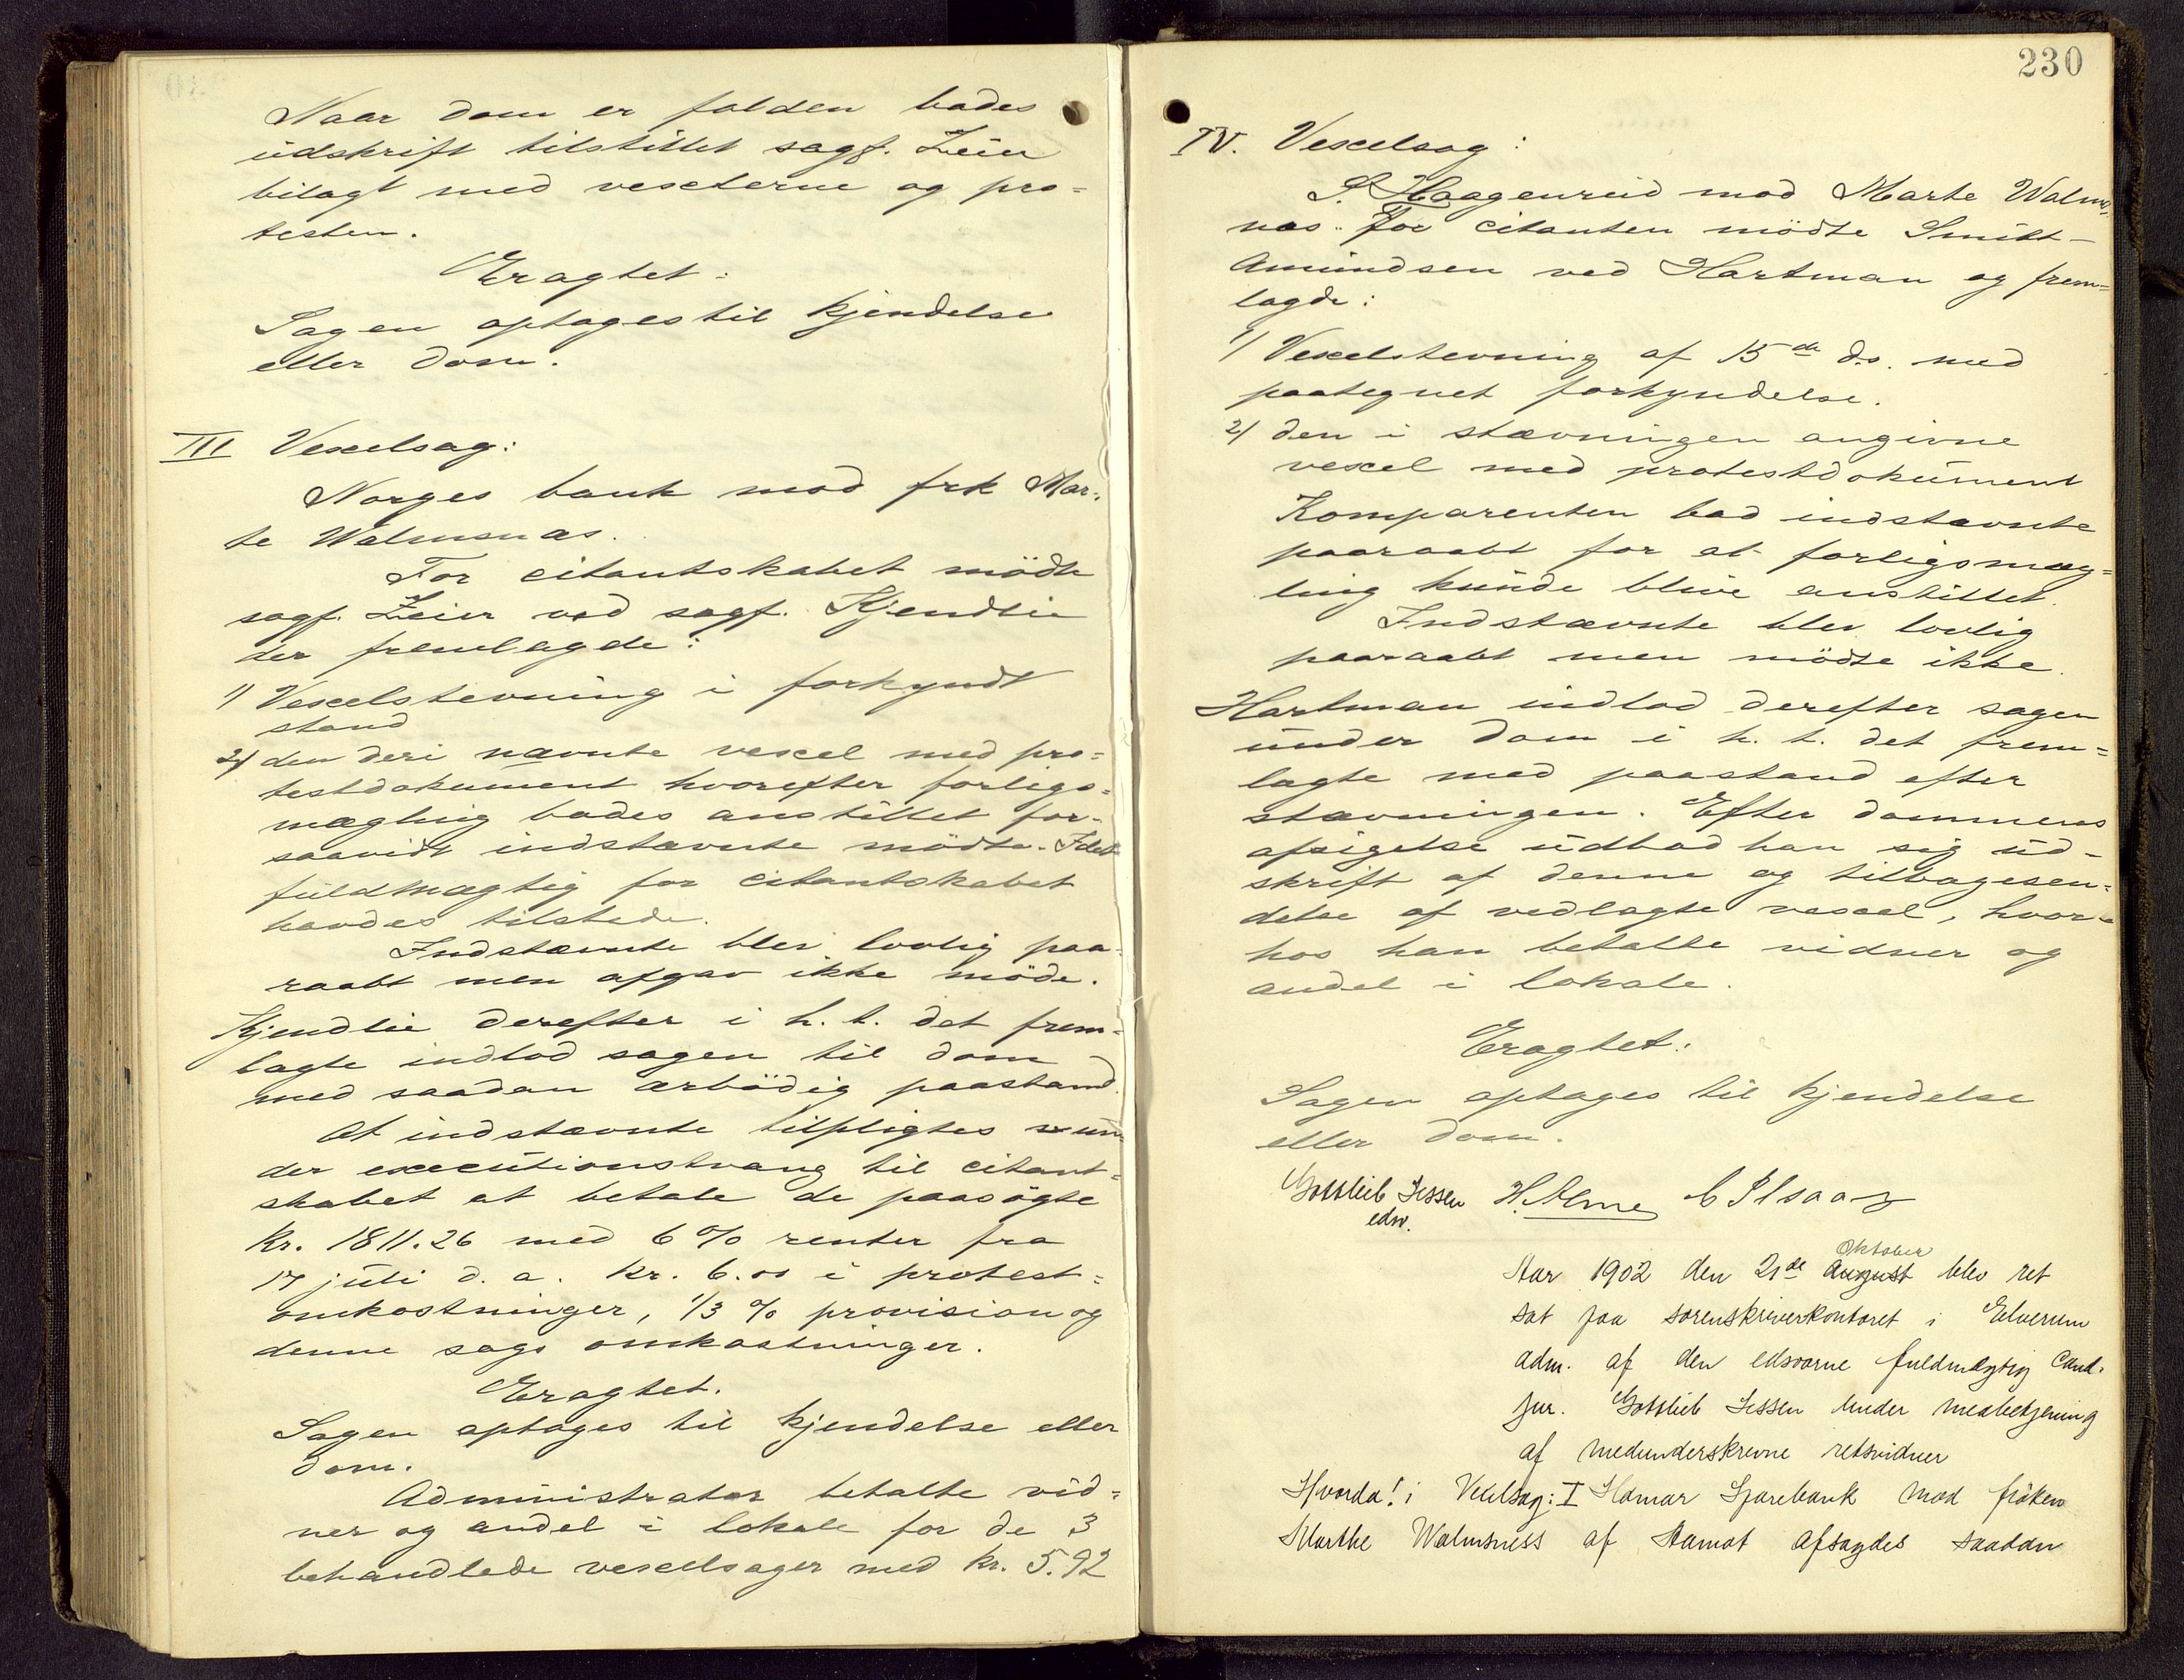 Naar dom er falden bades
udskrift tilstillet sagf. Zeier
bilagt med vexlerne og pro=
testen.
Eragtet:
Sagen optages til kjendelse
eller dom.
III Vexelsag:
Norges bank mod frk Mar=
te Walmsnæs.
For citantskabet mödte
sagf. Zeier ved sagf. Kjendlie
der fremlagde:
1) Vexelstevning i forkyndt
stand
2) den deri nævnte vexel med pro=
testdokument hvorefter forligs=
mægling bades anstillet for=
saavidt indstævnte mödte. Idet
fuldmægtig for citantskabet
havdes tilstede.
Indstævnte blev lovlig paa=
raabt men afgav ikke möde.
Kjendlie derefter i h. t. det frem=
lagte indlod sagen til dom
med saadan ærbödig paastand
At indstævnte tilpligtes un
der executionstvang til citant=
skabet at betale de paasögte
kr. 1811.26 med 6 % renter fra
17 juli d. a. kr. 6.00 i protest=
omkostninger, 1/3 % provision og
denne sags omkostninger.
Eragtet.
Sagen optages til kjendelse eller
dom.
Administrator betalte vid=
ner og andel i lokale for de 3
behandlede vexelsager med kr. 5.92
230
IV. Vexelsag:
S. Haagenrud mod Marte Walms
næs. For citanten mödte Smitt-
Amundsen ved Hartman og frem=
lagde:
1) Vexelstevning af 15de ds. med
paategnet forkyndelse.
2) den i stævningen angivne
vexel med protestdokument
Komparenten bad indstævnte
paaraabt for at forligsmæg=
ling kunde blive anstillet.
Indstævnte blev lovlig
paaraabt men mödte ikke.
Hartman indlod derefter sagen
under dom i h. t. det frem=
lagte med paastand efter
stævningen. Efter dommens
afsigelse udbad han sig ud-
skrift af denne og tilbagesen=
delse af vedlagte vexel, hvor=
hos han betalte vidner og
andel i lokale.
Eragtet:
Sagen optages til kjendelse
eller dom.
Gottlieb Jessen H. Alme
edsv.
Oktober
Aar 1902 den 21de August blev ret
sat paa sorenskriverkontoret i Elverum
adm. af den edsvorne fuldmægtig Cand.
jur. Gottlieb Jessen under medbetjening
af medunderskrevne retsvidner
Hvorda! i Vexelsag: I Hamar Sparebank mod fröken
Marthe Walmsness af Aamot afsagdes saadan